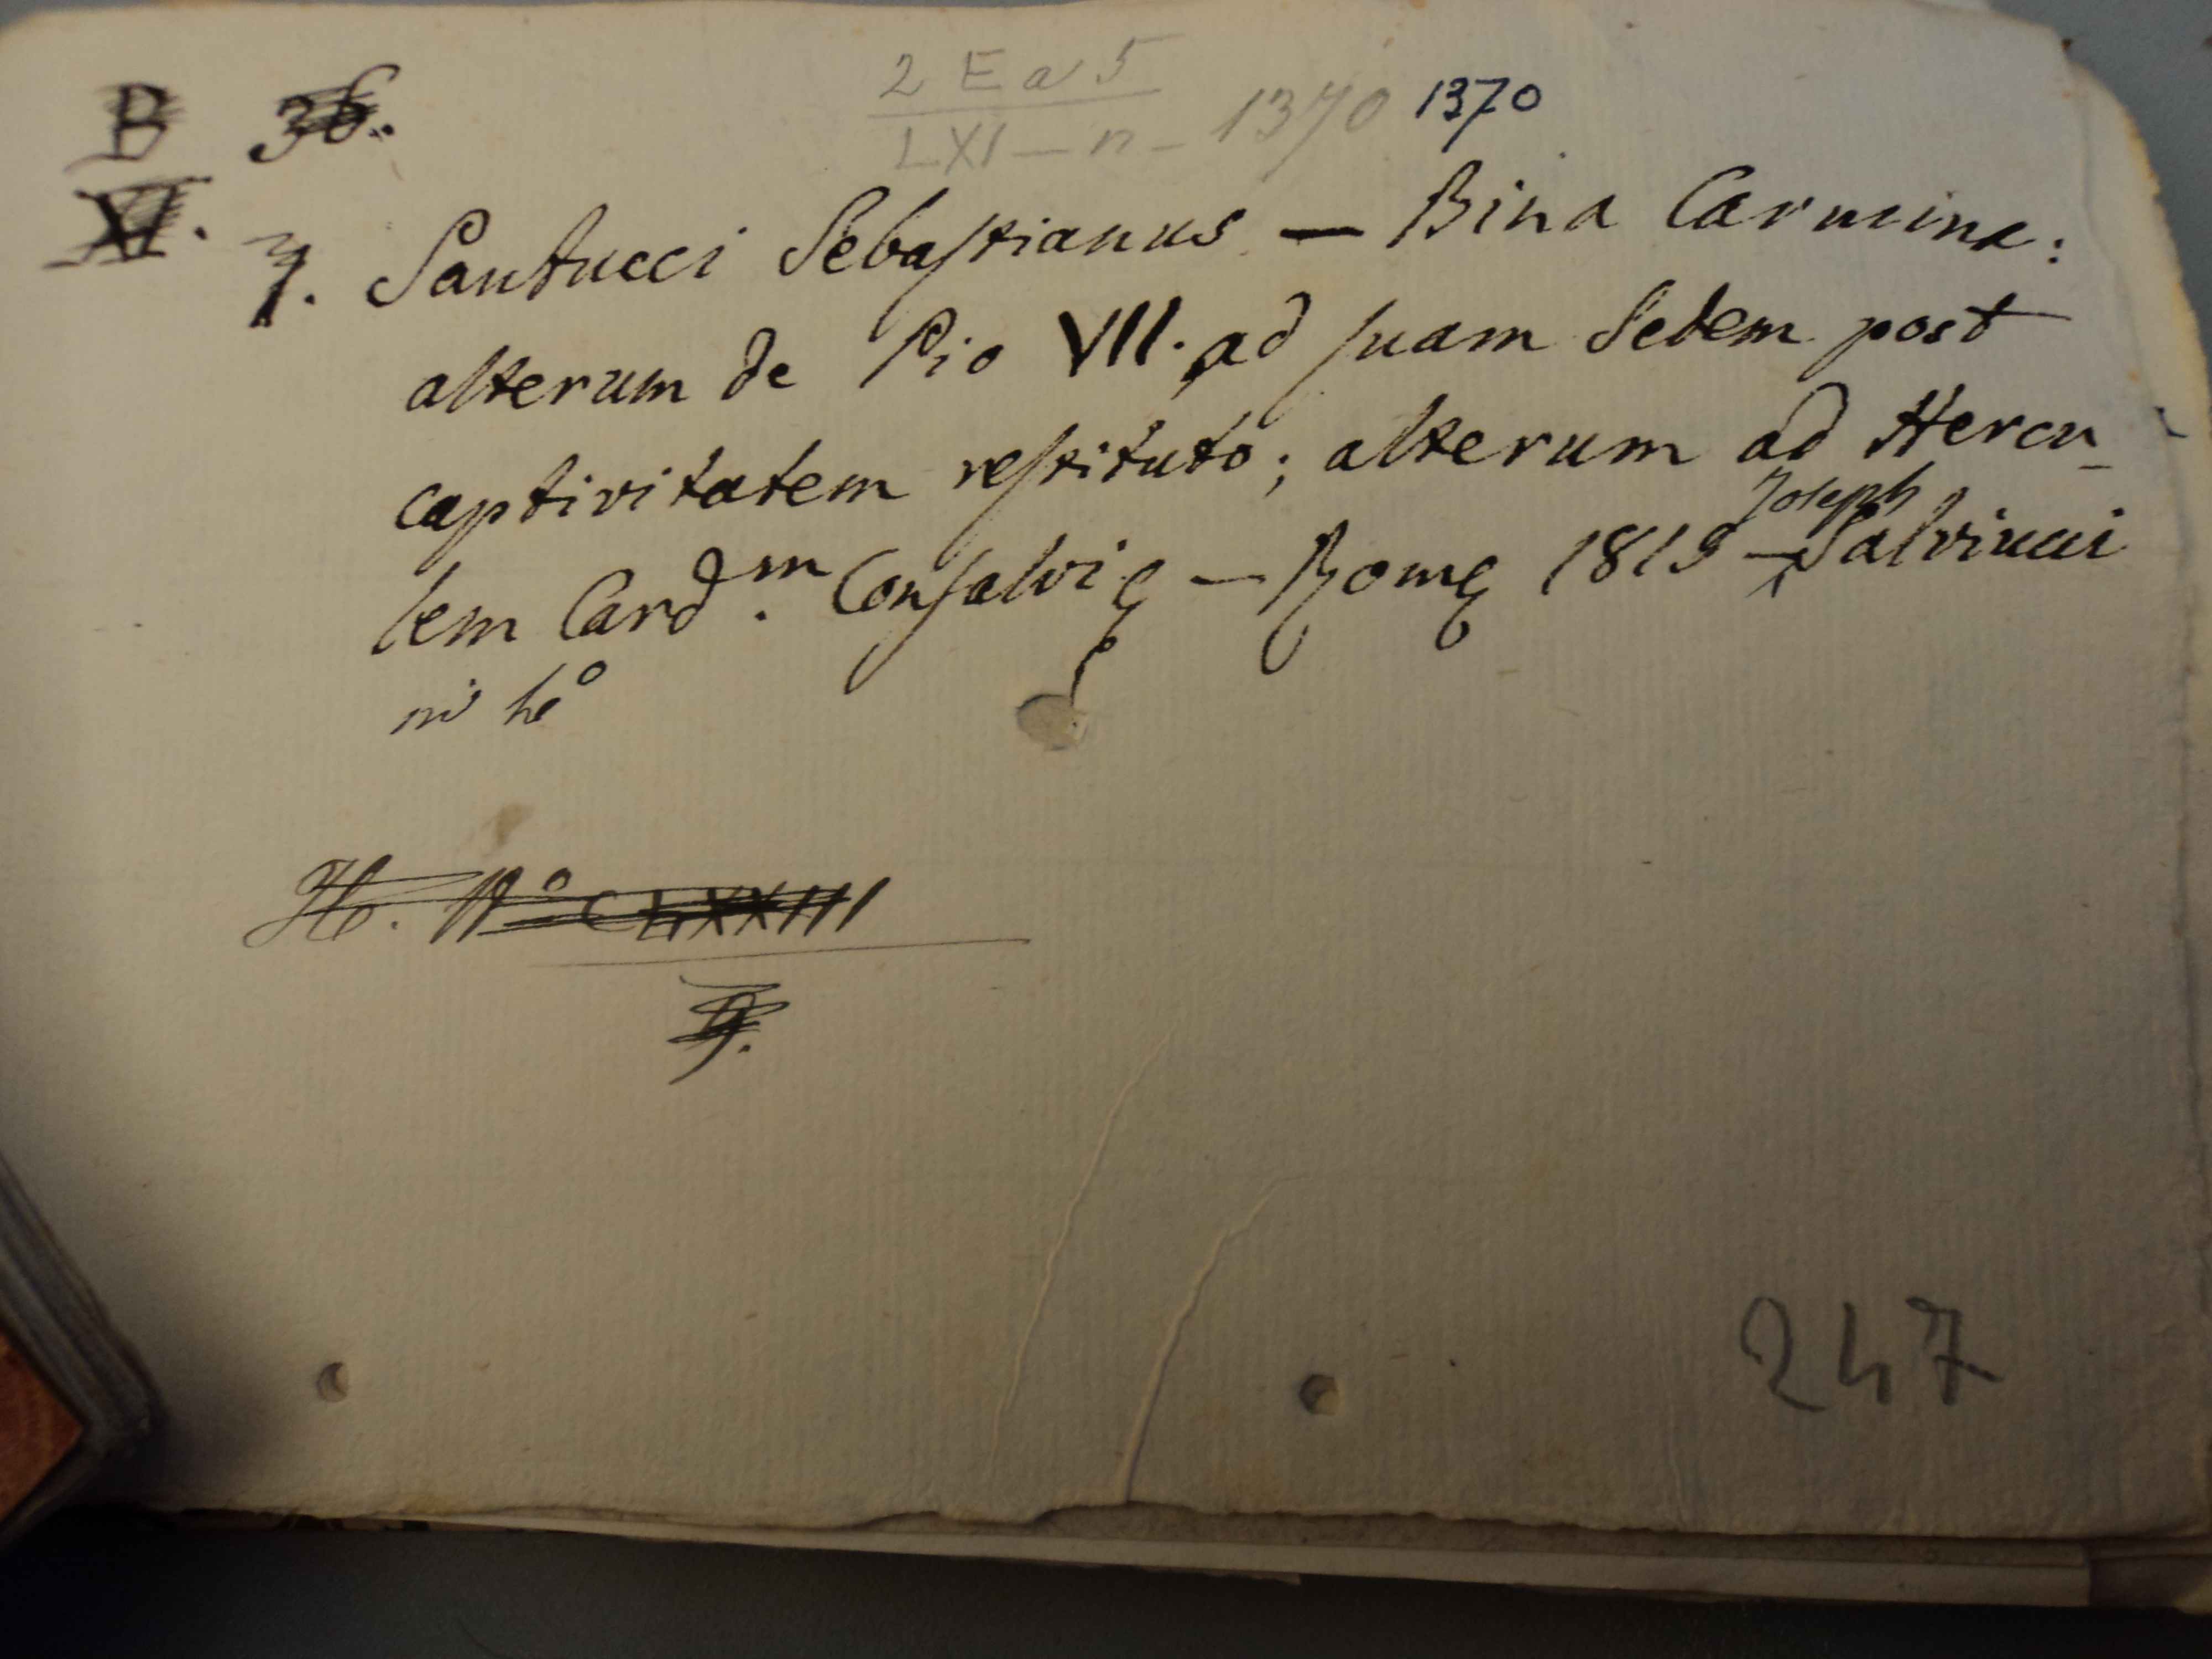 2 E a 5
LXI — n - 1370 1370
B 36.
XI.
7. Santucci Sebaſtianus — Bina Carmina:
alterum de Pio VII. ad ſuam Sedem post
captivitatem reſtituto; alterum ad Hercu_
lem Card.m Conſalviꝗ — Romę 1819 — Joseph Salviucci
in 4o
H. No CLXXIII
9.
247